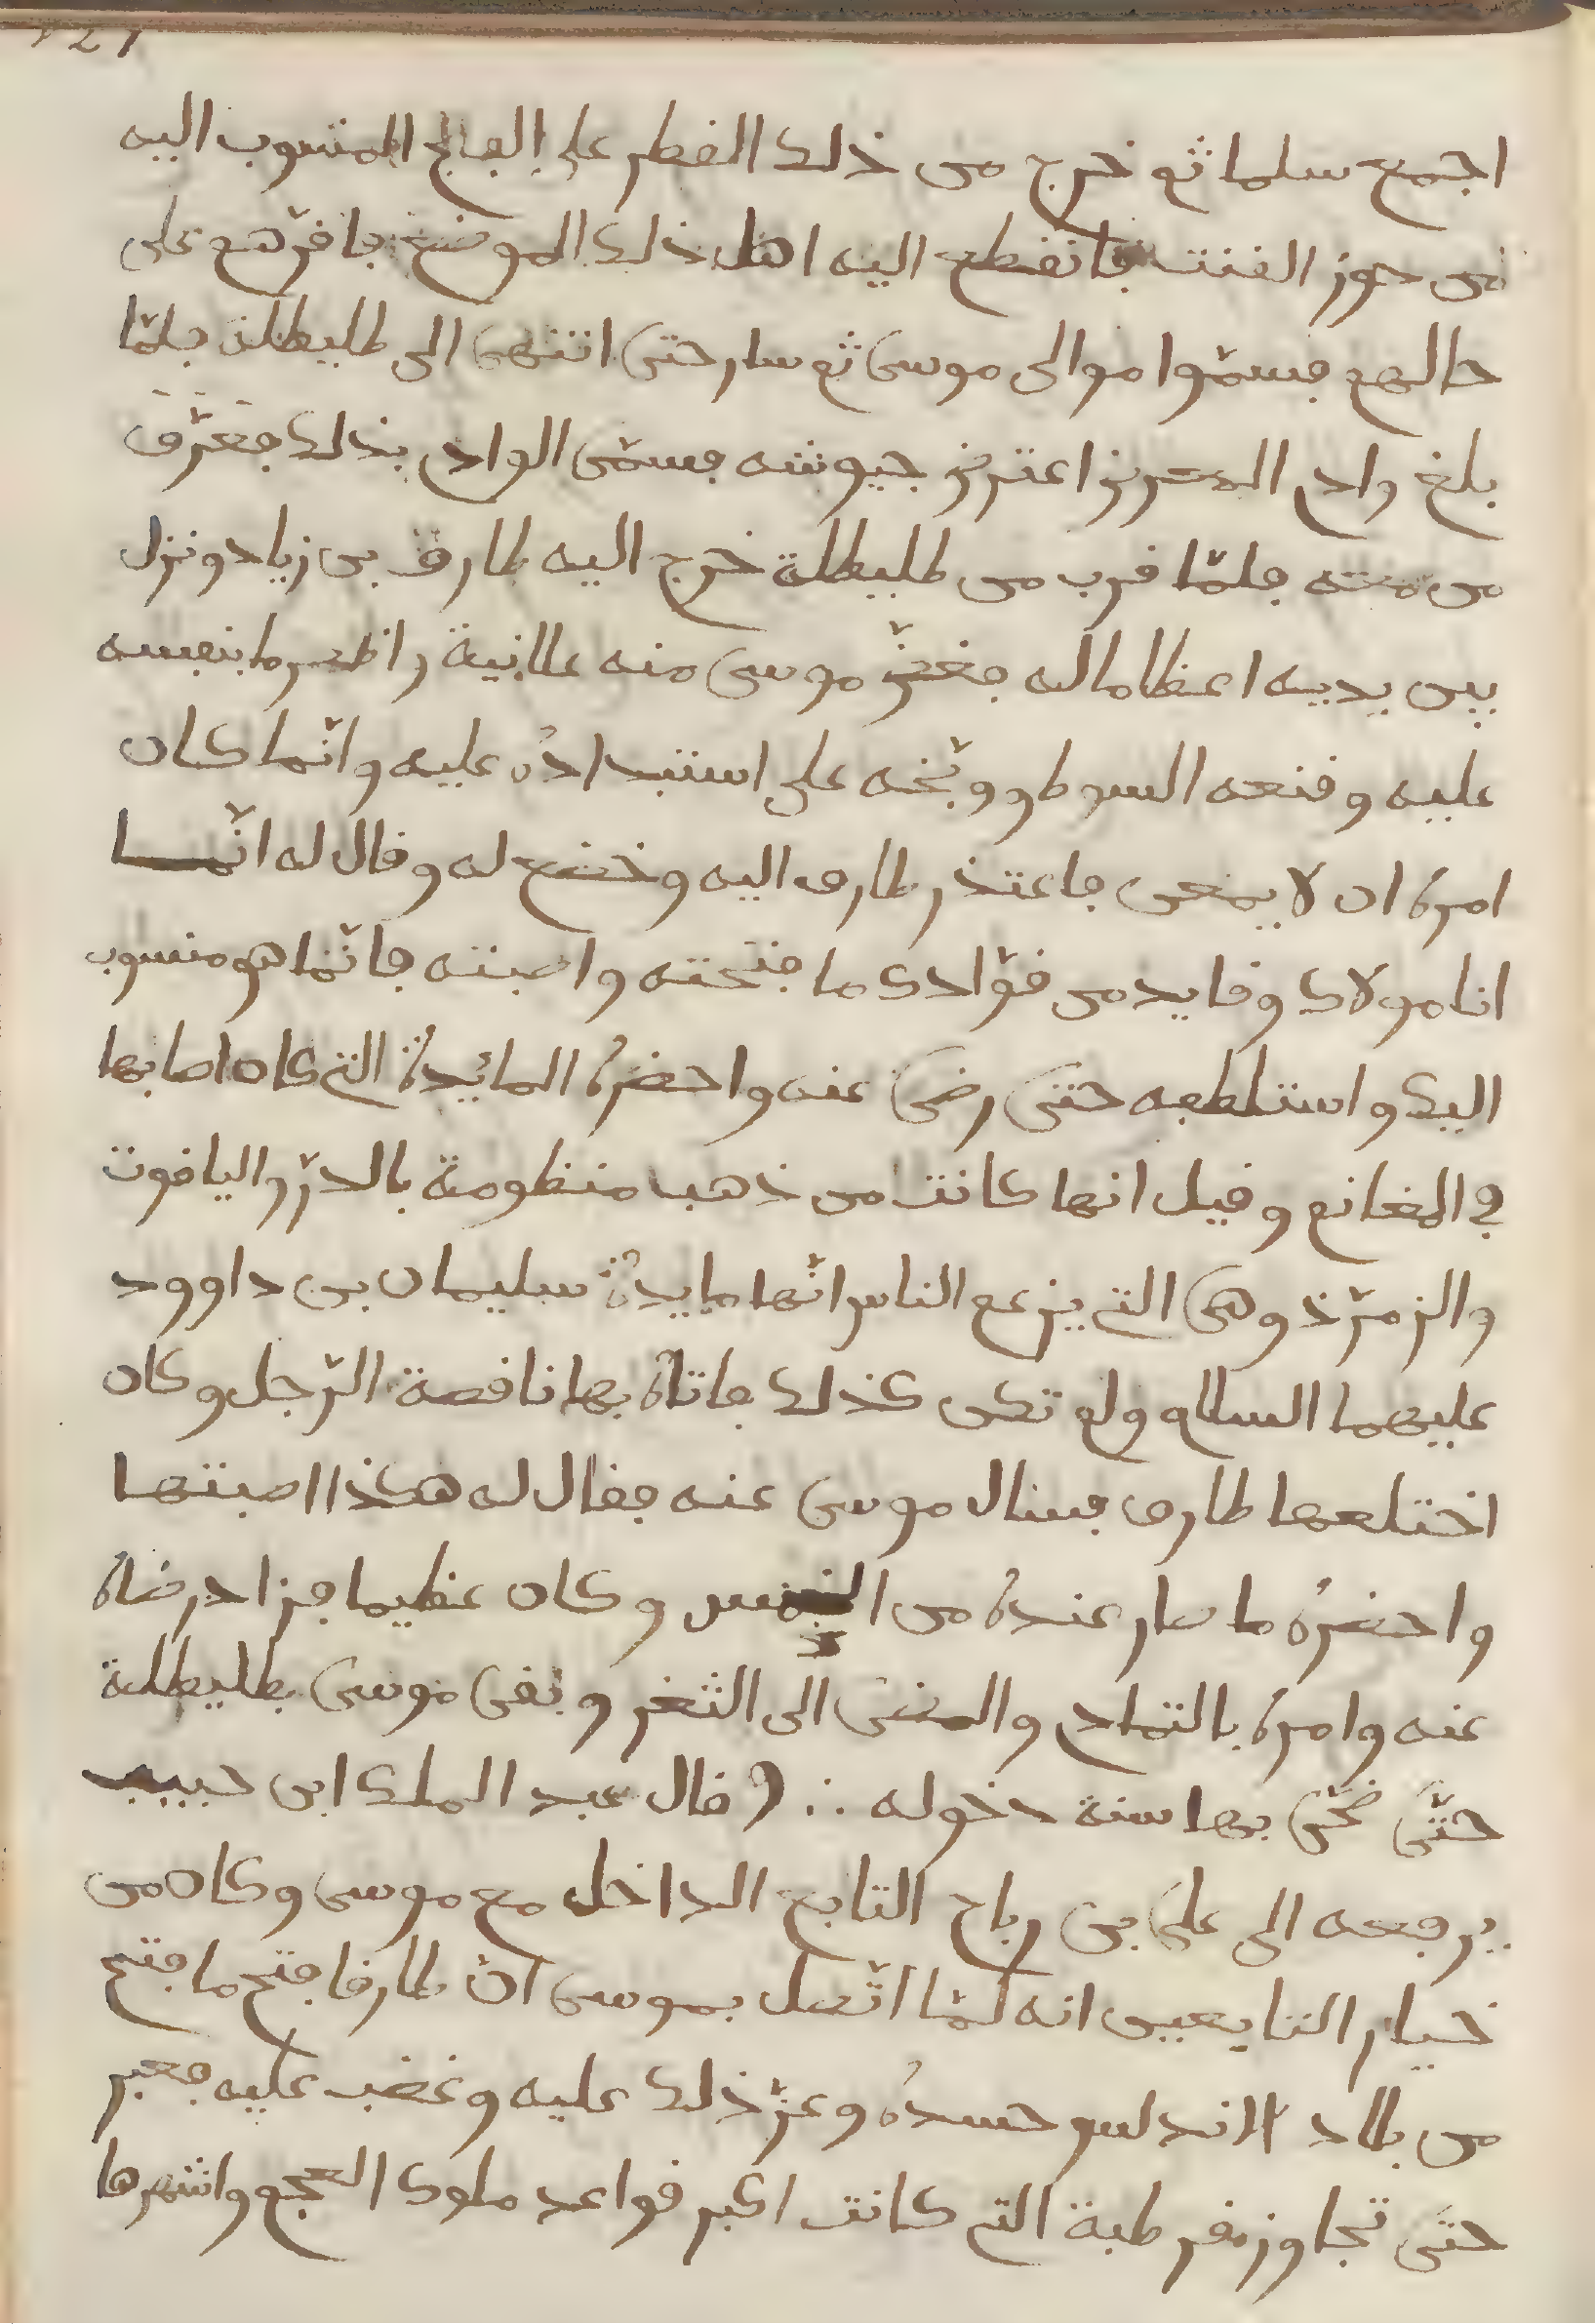 اجمع سلما ثم خرج من ذلك القطر على الفالج المنسوب اليه
من حوز الفنت فانقطع اليه اهل ذلك الموضع فاقرّهم على
حالهم فسمّوا موالى موسى ثم سار حتى انتهى الى طليطلة فلمّا
بلغ واد المعرض اعترض جيوشه فسمّى الواد بذلك فعرّف
من فلمّا قرب من طليطلة خرج اليه طارق بن زياد ونزل
بين يديه اعظاما له فغضّ موسى منه علانية واظهر ما بنفسه
عليه وقنعه السوط ووبّخه على استبداده عليه وانّما كان
امره ان لا يمعن فاعتذر طارق اليه وخضع له وقال له انّما
انا مولاك وقايد من قوّادك ما فتحته واصبته فانّما هو منسوب
اليك واستلطفه حتى رضى عنه واحضره المائيدة التى كان اصابها
في المغانم وقيل انها كانت من ذهب منظومة بالدرّ والياقوت
والزمرّذ وهى التى يزعم الناس انّها مايدة سليمان بن داوود
عليهما السلام ولم تكن كذلك فاتاه بها ناقصة الرّجل وكان
اختلعها طارق فسال موسى عنه فقال له هكذا اصبتها
واحضره ما صار عنده من الخمس وكان عظيما فزاد رضاه
عنه وامره بالتماد والمضى الى الثغر وبقى موسى بطليطلة
حتّى ضحّى بها سنة دخوله ∴ وقال عبد الملك ابن حبيب
يرفعه الى على بن رباح التابع الداخل مع موسى وكان من
خيار التابعين انه لمّا اتّصل بموسى انّ طارقا فتح ما فتح
من بلاد الاندلس حسده وعزّ ذلك عليه وغضب عليه فعبر
حتّى تجاوز قرطبة التى كانت اكبر قواعد ملوك العجم واشهرها